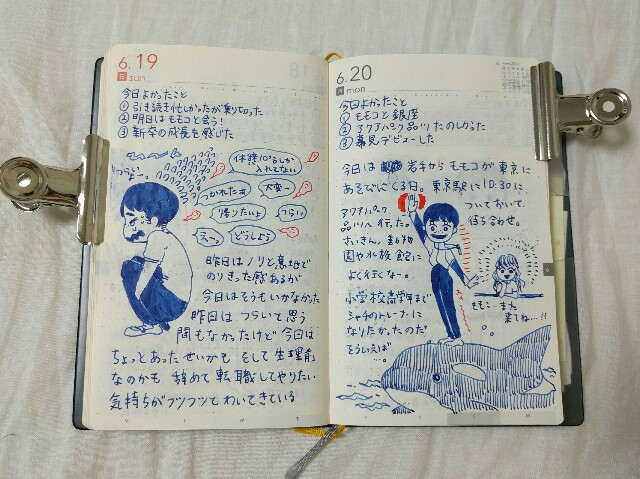 6.19
日 sun
今日よかったこと
① 引き続き忙しかったが乗り切った
② 明日はモモコと会う！
③ 新卒の成長を感じた
休憩10分しか
入れてない
つかれたす
大変ー
帰りたいよ
つらい
えーっ
どうしよう
昨日はノリと意地で
のりきった感あるが
今日はそうもいかなかった
昨日はつらいと思う
間もなかったけど今日は
ちょっとあったせいかも そして生理前
なのかも 辞めて転職してやりたい
気持ちがフツフツとわいてきている
6.20
月 mon
今日よかったこと
① モモコと銀座
② アクアパーク品川たのしかった
③ 幕見デビューした
今日は 岩手からモモコが東京に
あそびにくる日。東京駅に10:30に
ついておいて、
待ち合わせ。
アクアパーク
品川へ行った。
さいきん、動物
園や水族館に
よく行くなー。
小学校高学年まで
シャチのトレーナーに
なりたかったのだ
そういえば
…。
ももこ…また
来てね…!!